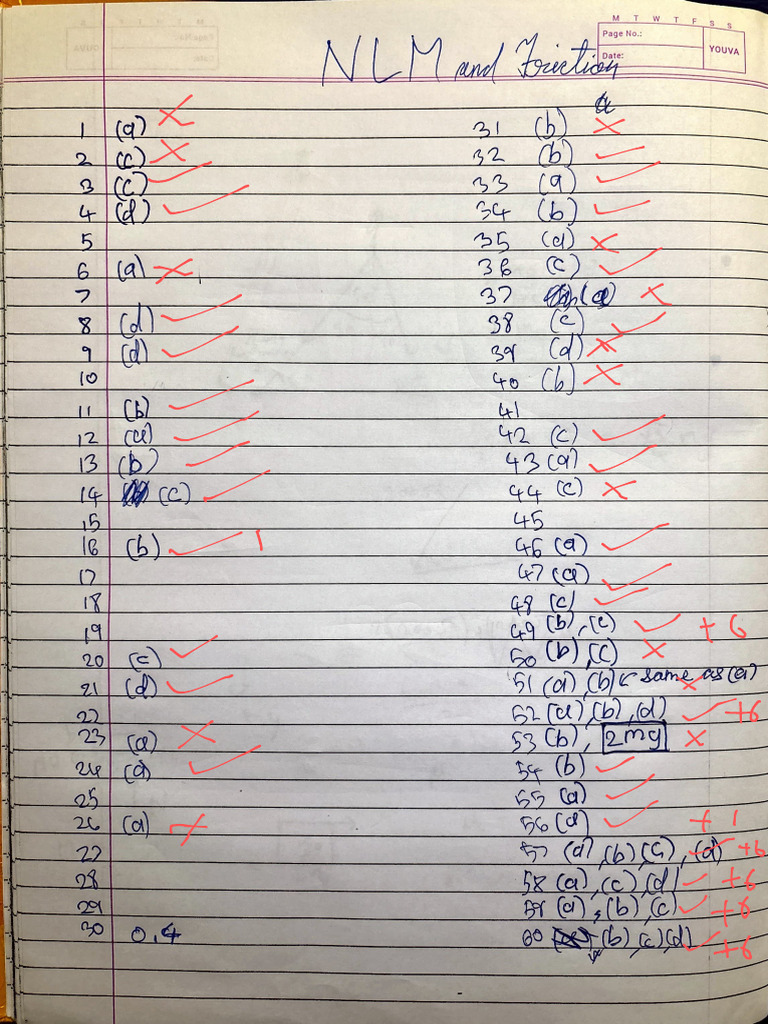 M T W T F S S
Page No.:
Date:
YOUVA
NLM and Friction
1 (a) ×
2 (c) ×
3 (c) ✓
4 (d) ✓
5
6 (a) ×
7
8 (d) ✓
9 (d) ✓
10
11 (b) ✓
12 (a) ✓
13 (b) ✓
14 (c) ✓
15
16 (b) ✓ 1
17
18
19
20 (c) ✓
21 (d) ✓
22
23 (a) ×
24 (a) ✓
25
26 (a) ×
27
28
29
30 0.4
a
31 (b) ×
32 (b) ✓
33 (a) ✓
34 (b) ✓
35 (d) ×
36 (c) ✓
37 (a) ×
38 (c) ✓
39 (d) ×
40 (b) ×
41
42 (c) ✓
43 (a) ✓
44 (c) ×
45
46 (a) ✓
47 (a) ✓
48 (c) ✓
49 (b), (c) ✓ +6
50 (b), (c) ×
51 (a), (b) ↙ same as (a) ×
52 (a), (b), (d) ✓ +6
53 (b), 2mg ×
54 (b) ✓
55 (a) ✓
56 (d) ✓ +1
57 (a), (b) (c), (d) ✓ +6
58 (a), (c) (d) ✓ +6
59 (a), (b), (c) ✓ +6
60 (b), (c) (d) ✓ +6